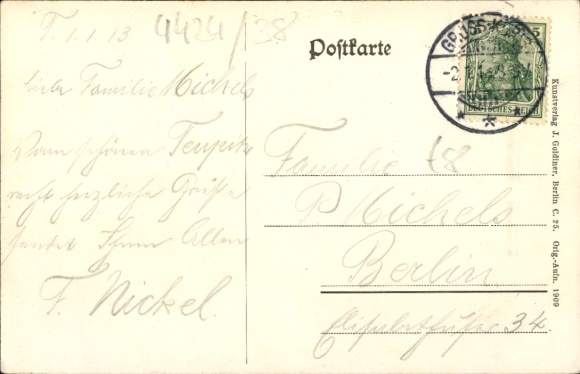 T. 1.1.13
4424/38
Postkarte
Liebe Familie Michels
Vom schönen Teupitz
recht herzliche Grüße
sendet Ihnen Allen
F. Nickel.
Familie
P Michels
Berlin
34.
68
5
DEUTSCHES REICH
Kunstverlag J. Goldiner, Berlin C. 25. Orig.-Aufn. 1909